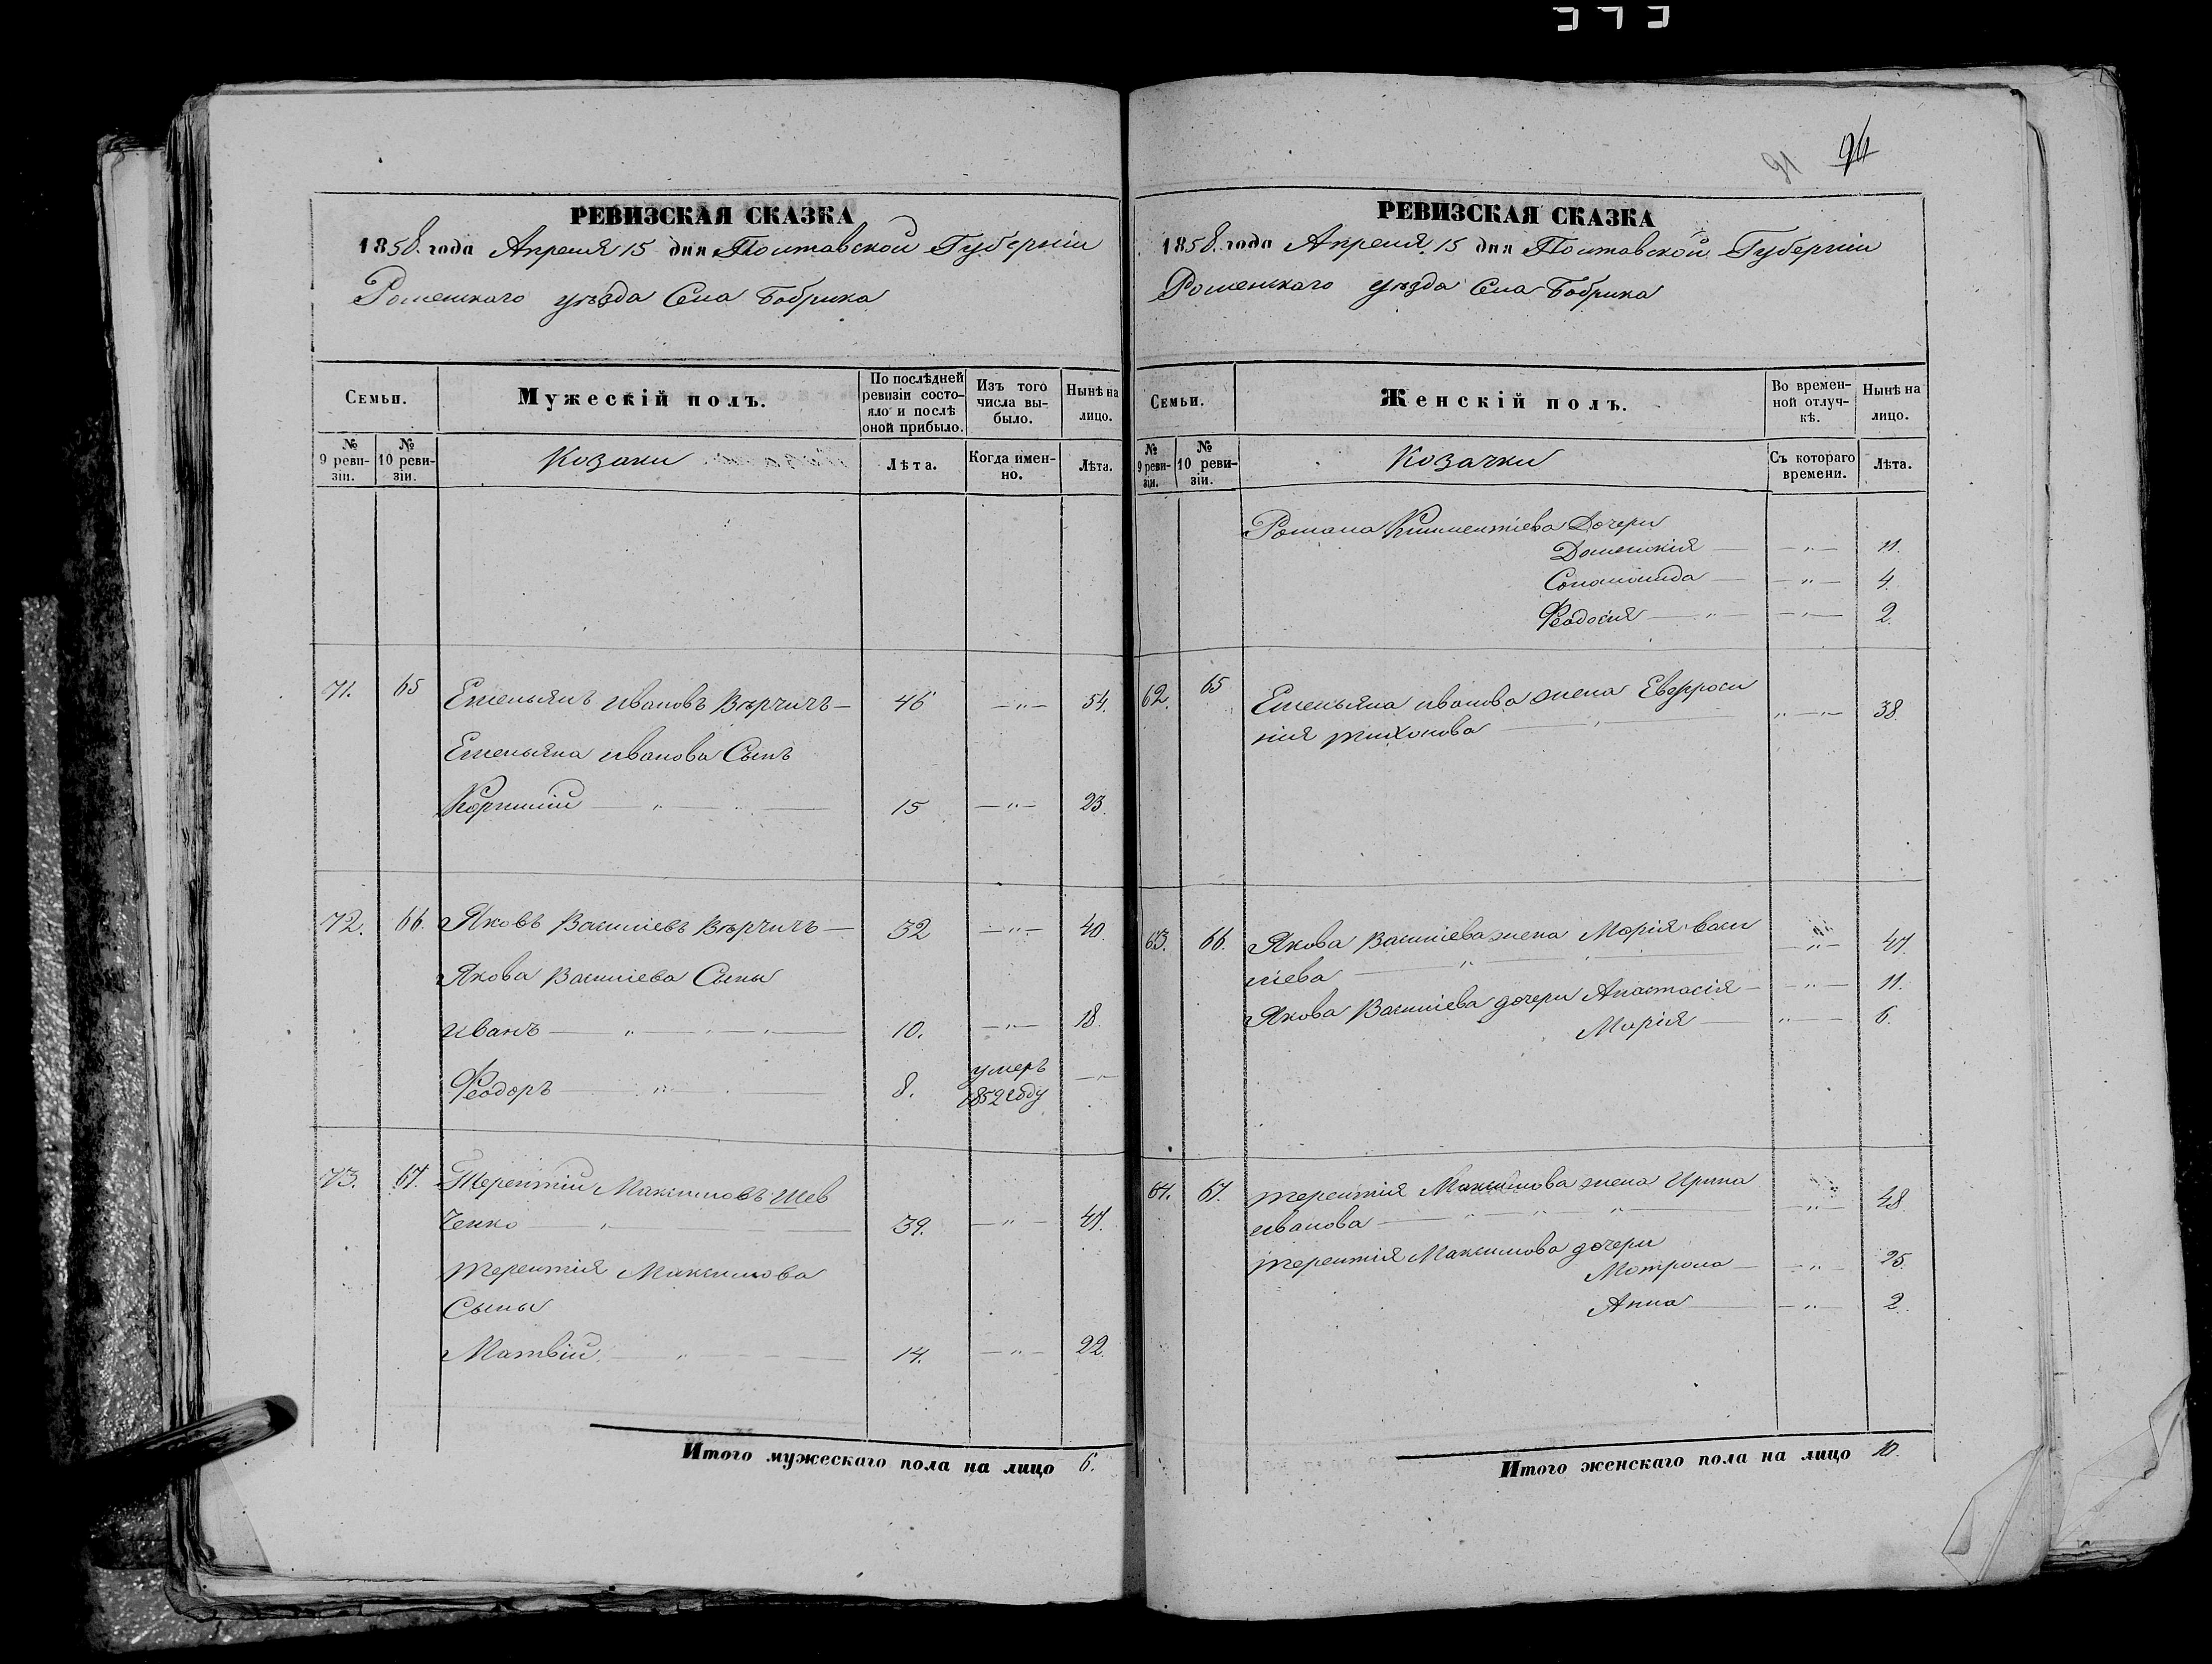 94
91
РЕВИЗСКАЯ СКАЗКА
1858. года Апреля 15 дня Полтавской Губерніи
Роменскаго уѣзда Села Бобрика
Семьи.
Мужескій полъ.
По послѣдней ревизіи состояло и послѣ оной прибыло.
Изъ того числа выбыло.
Нынѣ на лицо.
№ 9 ревизіи.
№ 10 ревизіи.
Козаки
Лѣта.
Когда именно.
Лѣта.
71. 65 Емельянъ Ивановъ Вѣрчичъ — 46 — " — 54.
Емельяна Иванова Сынъ
Корнилій — " — 15 — " — 23.
72. 66. Яковъ Василіевъ Вѣрчичъ — 32 — " — 40.
Якова Василіева Сыны
Иванъ — " — 10. — " — 18.
Феодоръ — " — 8. умеръ 1852 году — " —
73. 67. Терентій Максимовъ Шев
ченко — " — 39. — " — 47.
Терентія Максимова
Сыны
Матвій — " — 14. — " — 22.
Итого мужескаго пола на лицо 6.
РЕВИЗСКАЯ СКАЗКА
1858. года Апреля 15 дня Полтавской Губерніи
Роменскаго уѣзда Села Бобрика
Семьи.
Женскій полъ.
Во временной отлучкѣ.
Нынѣ на лицо.
№ 9 ревизіи.
№ 10 ревизіи.
Козачки
Съ котораго времени.
Лѣта.
Романа Климентіева Дочери
Домникія — " — 11.
Соломонида — " — 4.
Феодосія — " — 2.
62. 65 Емельяна Иванова жена Евфроси
нія Тихонова — " — 38.
63. 66. Якова Василіева жена Марія Васи
ліева — " — 47.
Якова Василіева дочери Анастасія — " — 11.
Марія — " — 6.
64. 67. Терентія Максимова жена Ирина
Иванова — " — 48.
Терентія Максимова дочери
Мотрона — " — 25.
Анна — " — 2.
Итого женскаго пола на лицо 10.